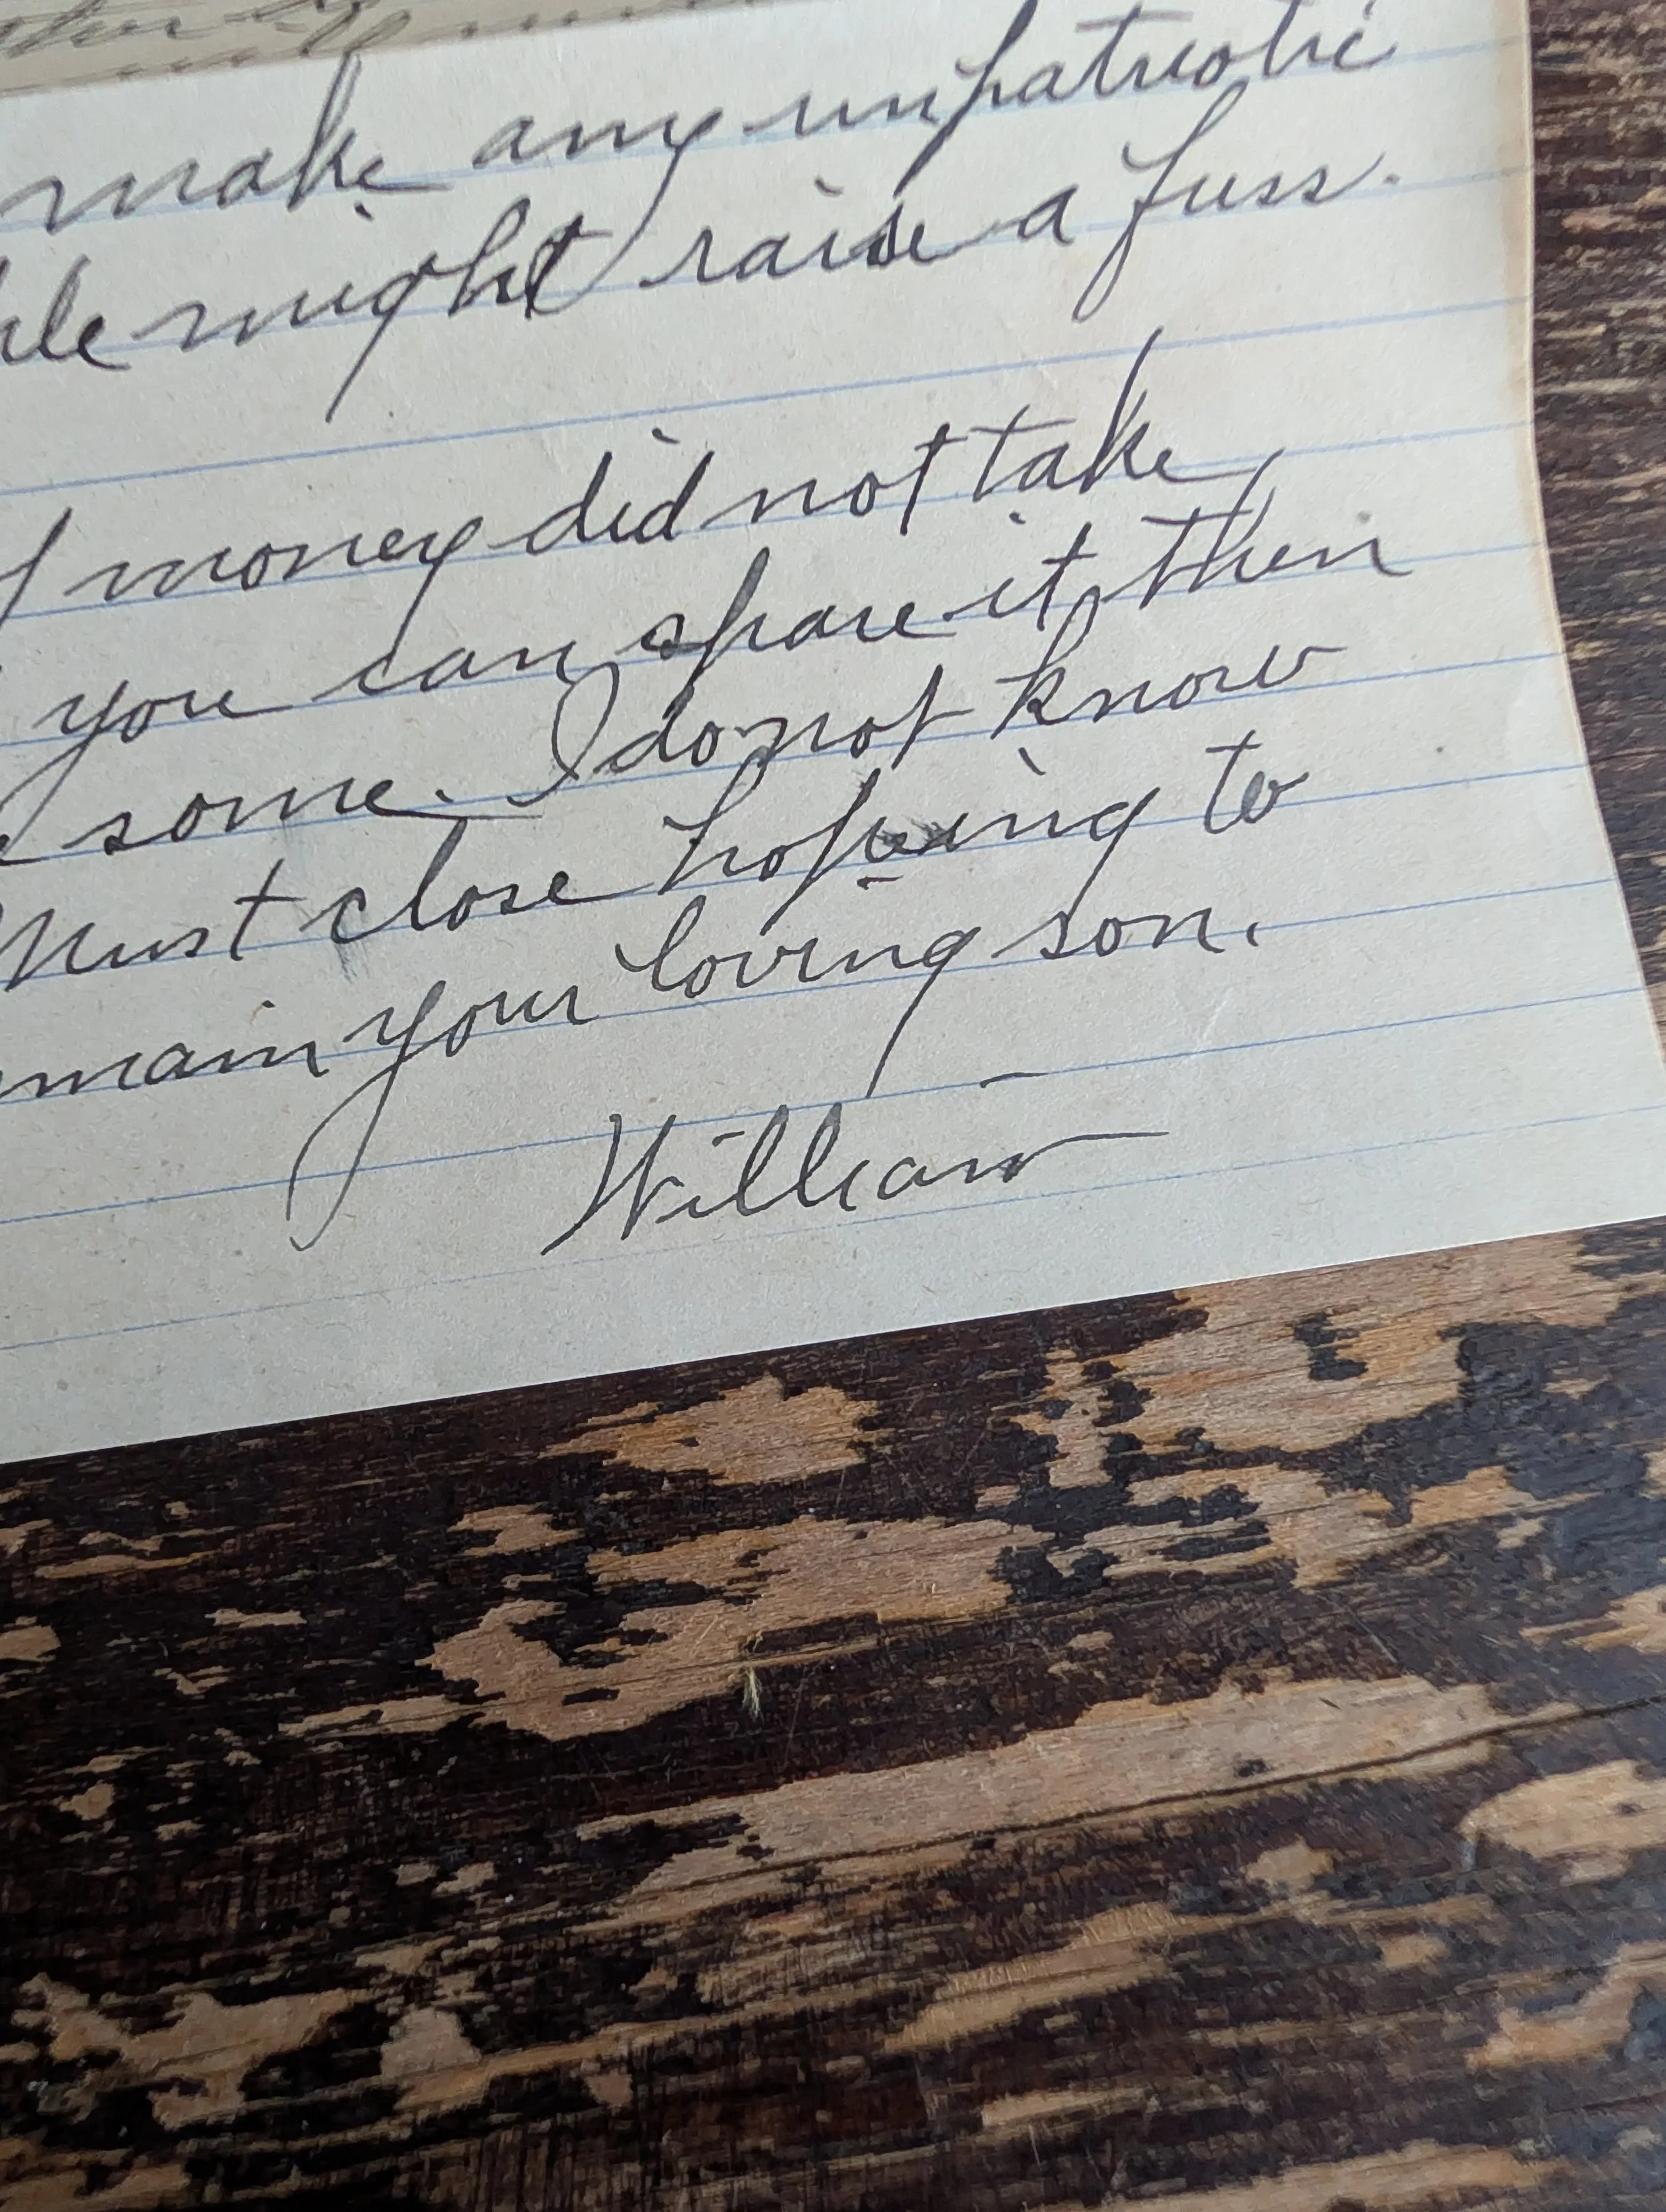 make any unpatriotic
might raise a fuss.
money did not take
you can spare it then
some. I do not know
Must close hoping to
your loving son.
William